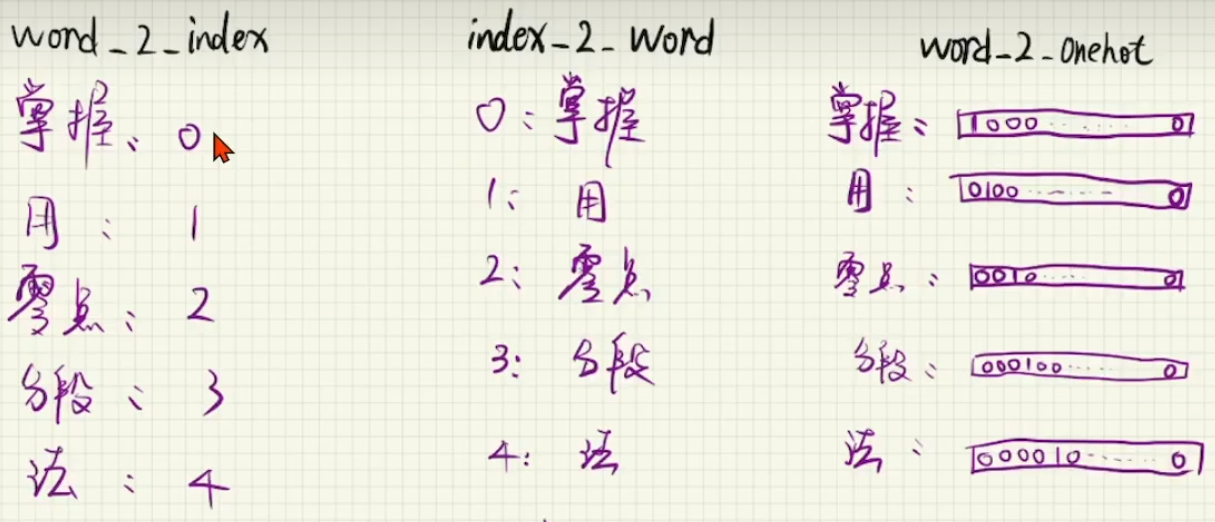 word_2_index
掌握: 0
用: 1
零点: 2
分段: 3
法: 4
index_2_word
0: 掌握
1: 用
2: 零点
3: 分段
4: 法
word_2_onehot
掌握: 1000......0
用: 0100......0
零点: 0010......0
分段: 000100......0
法: 000010......0